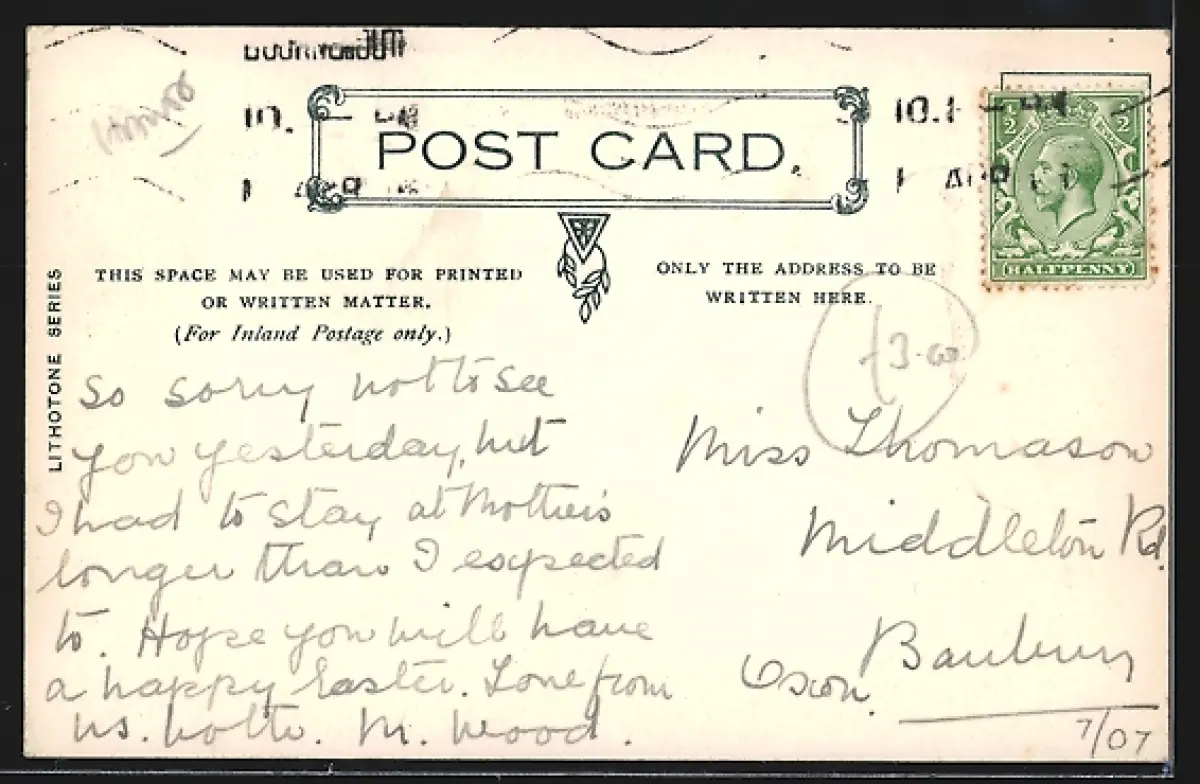 BOURNEMOUTH
10.
10.1
POST CARD.
1/2 1/2
HALFPENNY
LITHOTONE SERIES
THIS SPACE MAY BE USED FOR PRINTED
OR WRITTEN MATTER.
(For Inland Postage only.)
ONLY THE ADDRESS TO BE
WRITTEN HERE.
So sorry not to see
you yesterday, but
I had to stay at Mother's
longer than I expected
to. Hope you will have
a happy Easter. Love from
us both. M. Wood.
Miss Thomason
Middleton Rd.
Banbury
Oxon.
7/07